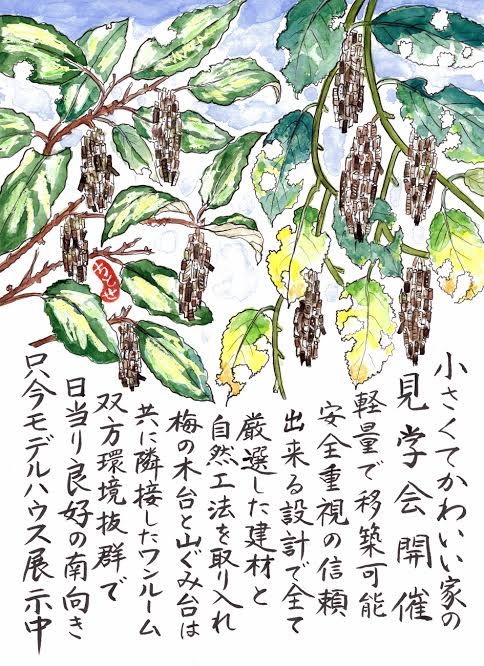 小さくてかわいい家の
見学会開催
軽量で移築可能
安全重視の信頼
出来る設計で全て
厳選した建材と
自然工法を取り入れ
梅の木台と山ぐみ台は
共に隣接したワンルーム
双方環境抜群で
日当り良好の南向き
只今モデルハウス展示中